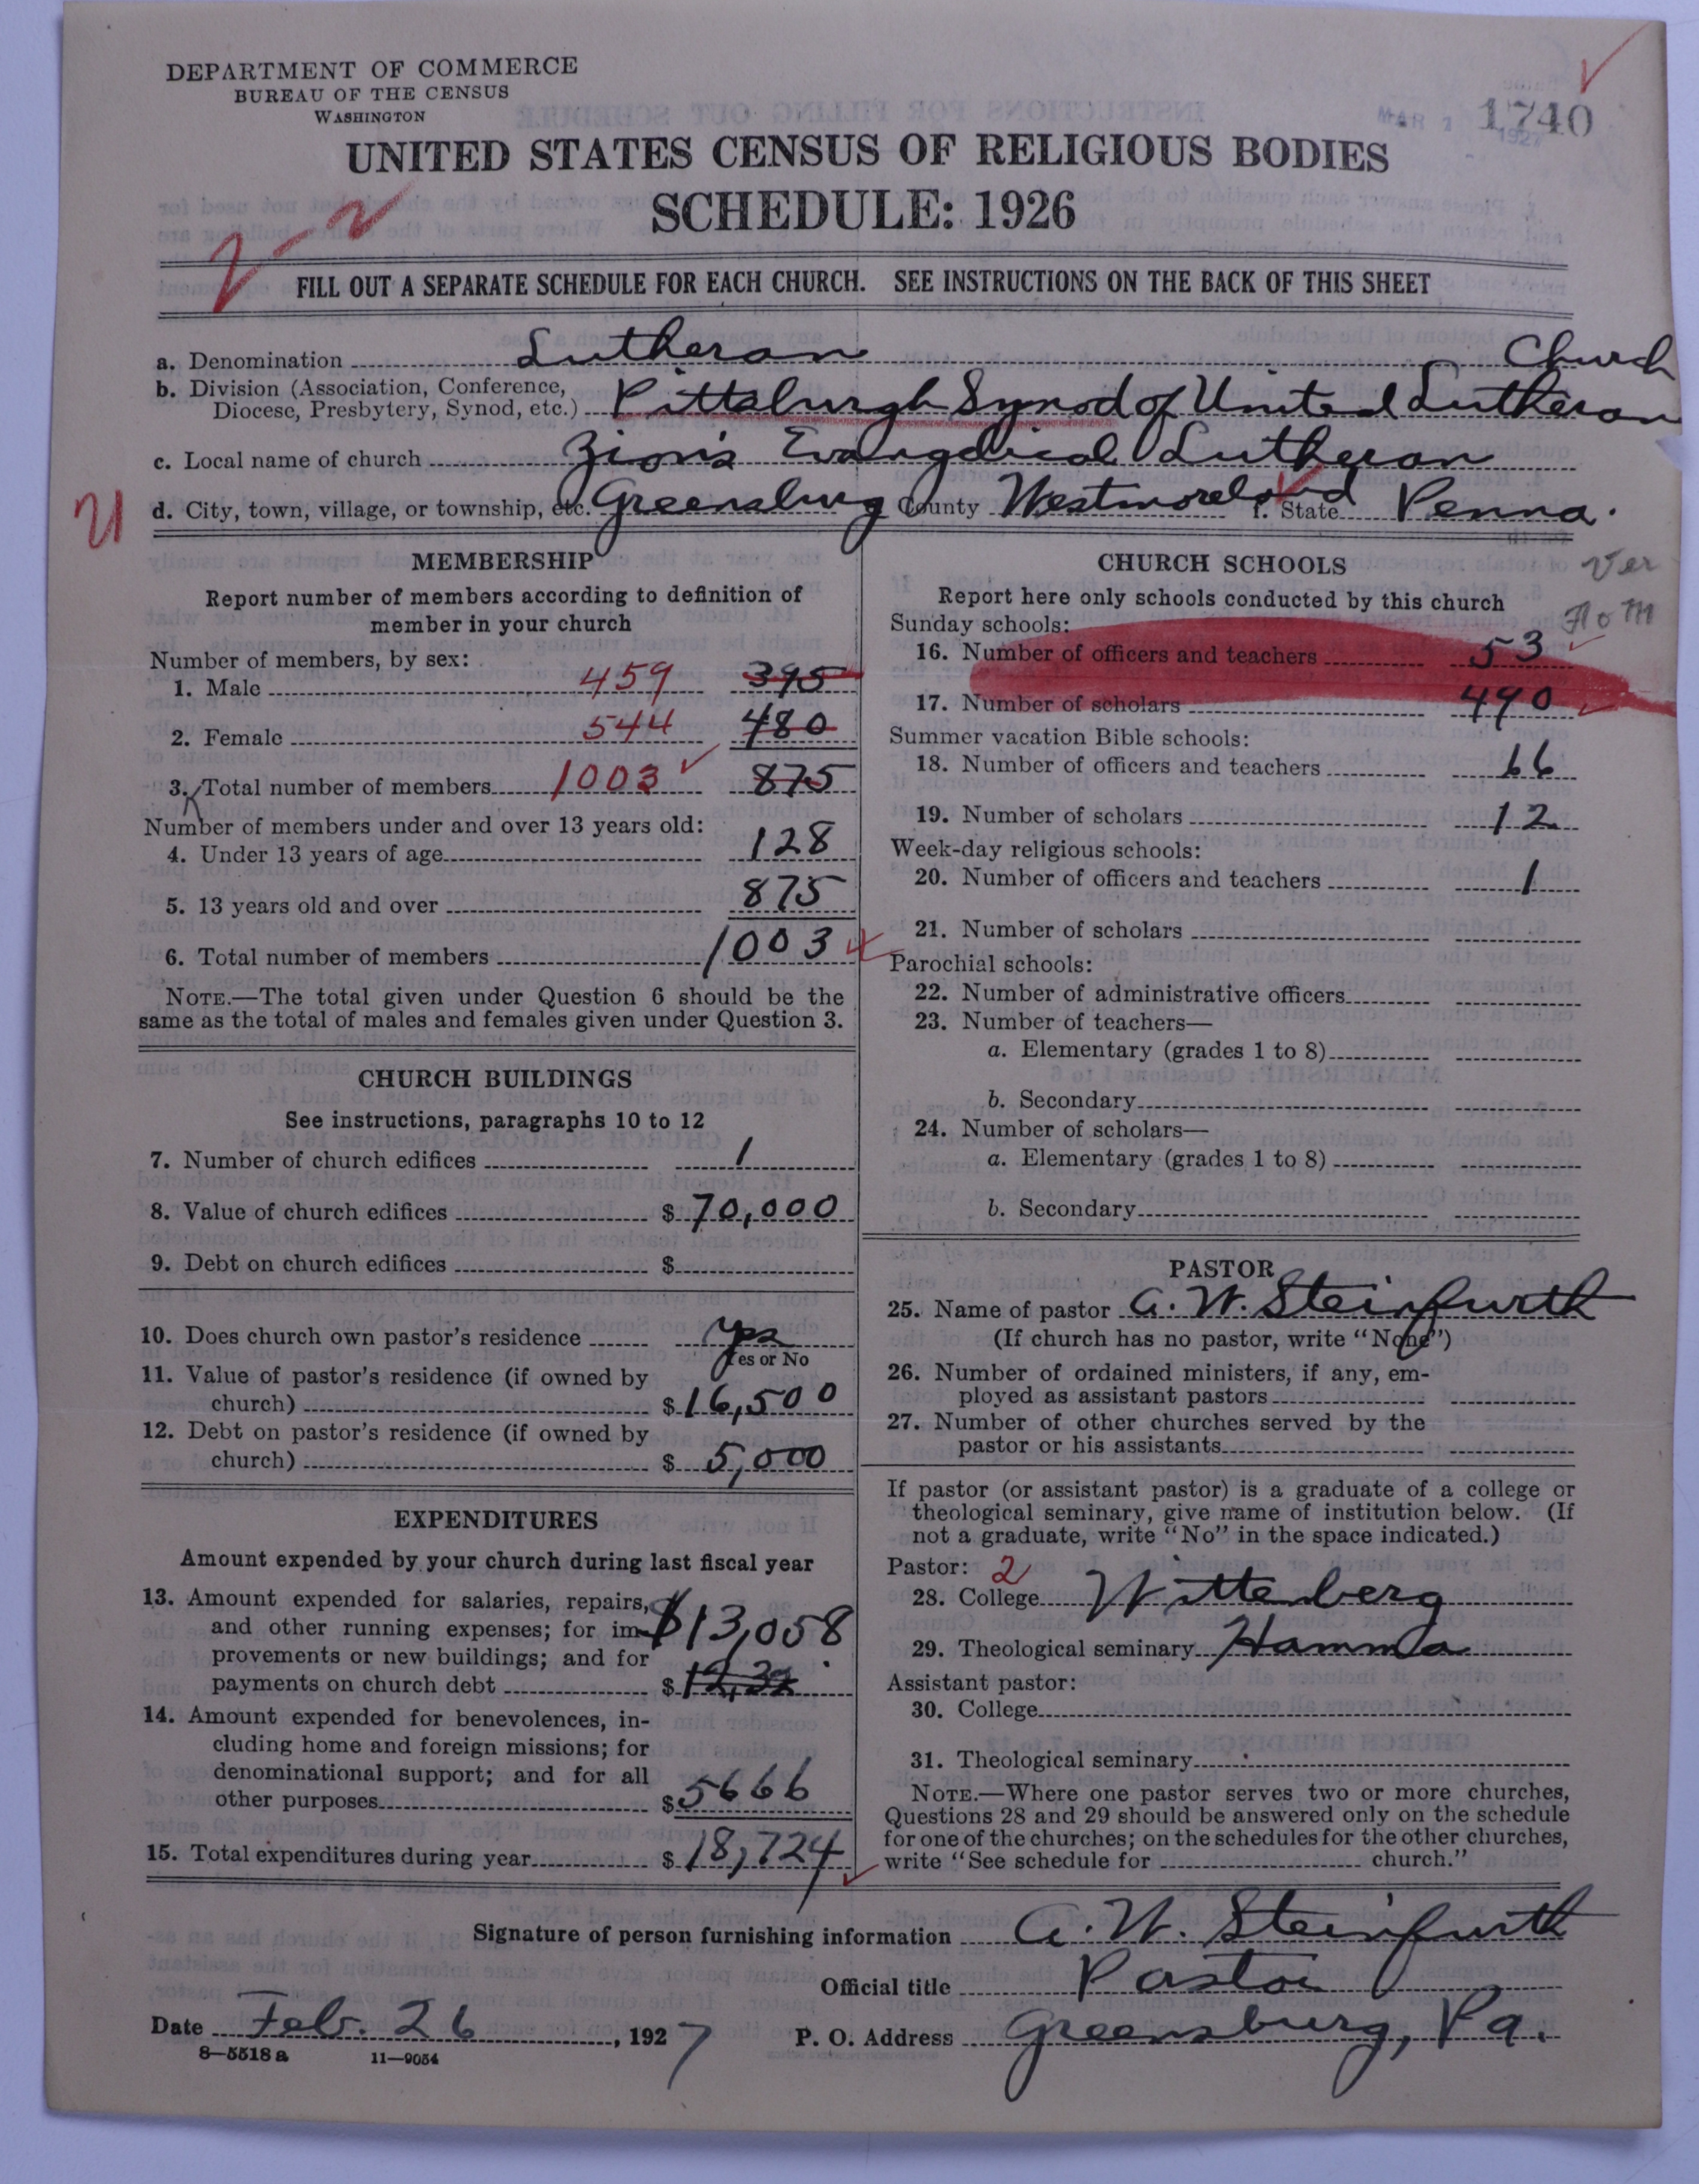 DEPARTMENT OF COMMERCE
BUREAU OF THE CENSUS
WASHINGTON
MAR 1 1927
1740
UNITED STATES CENSUS OF RELIGIOUS BODIES
SCHEDULE: 1926
FILL OUT A SEPARATE SCHEDULE FOR EACH CHURCH. SEE INSTRUCTIONS ON THE BACK OF THIS SHEET
a. Denomination Lutheran Church
b. Division (Association, Conference,
Diocese, Presbytery, Synod, etc.) Pittsburgh Synod of United Lutheran
c. Local name of church Zion's Evangelical Lutheran
d. City, town, village, or township, etc. Greensburg County Westmoreland f. State Penna.
MEMBERSHIP
Report number of members according to definition of
member in your church
Number of members, by sex:
1. Male 459 395
2. Female 544 480
3. Total number of members 1003 875
Number of members under and over 13 years old:
4. Under 13 years of age 128
5. 13 years old and over 875
6. Total number of members 1003
NOTE.—The total given under Question 6 should be the
same as the total of males and females given under Question 3.
CHURCH BUILDINGS
See instructions, paragraphs 10 to 12
7. Number of church edifices 1
8. Value of church edifices $ 70,000
9. Debt on church edifices $
10. Does church own pastor's residence yes
Yes or No
11. Value of pastor's residence (if owned by
church) $ 16,500
12. Debt on pastor's residence (if owned by
church) $ 5,000
EXPENDITURES
Amount expended by your church during last fiscal year
13. Amount expended for salaries, repairs,
and other running expenses; for im- $13,058
provements or new buildings; and for
payments on church debt $
14. Amount expended for benevolences, in-
cluding home and foreign missions; for
denominational support; and for all
other purposes $ 5666
15. Total expenditures during year $ 18,724
CHURCH SCHOOLS
Ver
Report here only schools conducted by this church
Sunday schools:
16. Number of officers and teachers 53
17. Number of scholars 490
Summer vacation Bible schools:
18. Number of officers and teachers 66
19. Number of scholars 12
Week-day religious schools:
20. Number of officers and teachers 1
21. Number of scholars
Parochial schools:
22. Number of administrative officers
23. Number of teachers—
a. Elementary (grades 1 to 8)
b. Secondary
24. Number of scholars—
a. Elementary (grades 1 to 8)
b. Secondary
PASTOR
25. Name of pastor A. W. Steinfurth
(If church has no pastor, write "None")
26. Number of ordained ministers, if any, em-
ployed as assistant pastors
27. Number of other churches served by the
pastor or his assistants
If pastor (or assistant pastor) is a graduate of a college or
theological seminary, give name of institution below. (If
not a graduate, write "No" in the space indicated.)
Pastor: 2
28. College Wittenberg
29. Theological seminary Hamma
Assistant pastor:
30. College
31. Theological seminary
NOTE.—Where one pastor serves two or more churches,
Questions 28 and 29 should be answered only on the schedule
for one of the churches; on the schedules for the other churches,
write "See schedule for church."
Signature of person furnishing information A. W. Steinfurth
Official title Pastor
Date Feb. 26, 1927 P. O. Address Greensburg, Pa.
8—5518a 11—9054